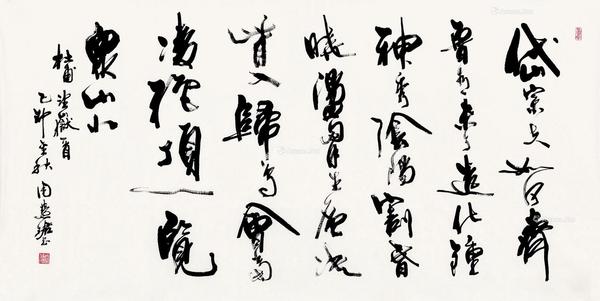 岱宗夫如何齊
魯青未了造化鍾
神秀陰陽割昏
曉盪胸生層雲決
眥入歸鳥會當
凌絕頂一覽
眾山小
杜甫望嶽一首
卯秋周慧珺